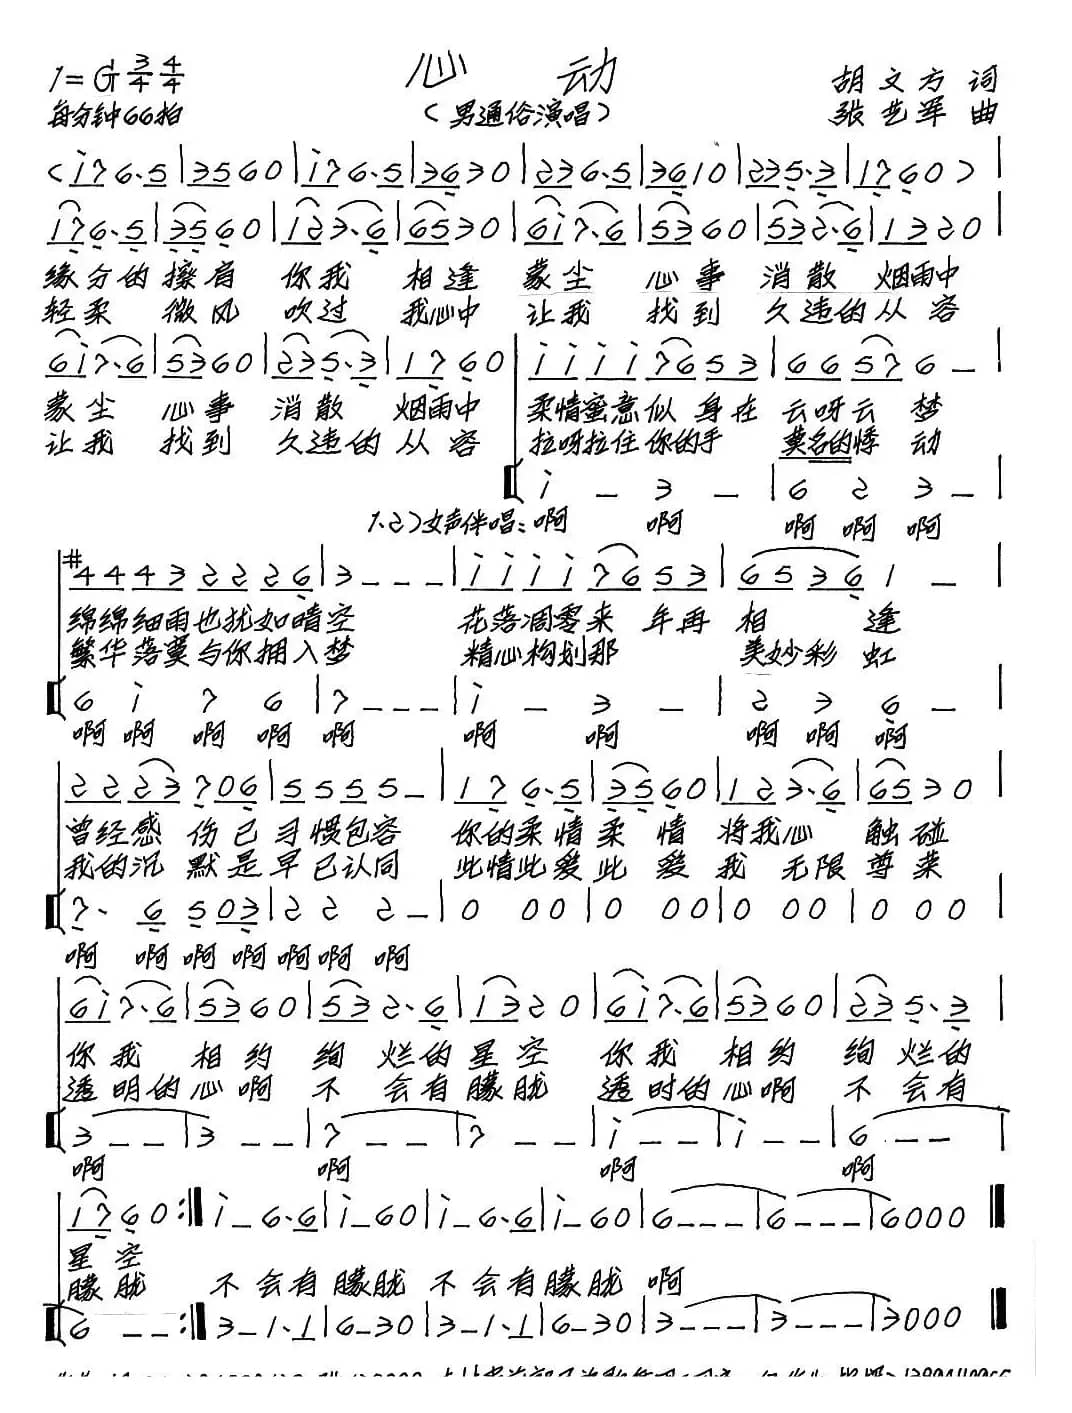 1=G 3/4 4/4
心 动
胡文方 词
每分钟66拍
（男通俗演唱）
张艺军 曲
<i76.5|3560|i76.5|3630|236.5|3610|235.3|1760>|
176.5|3560|123.6|6530|6i7.6|5360|532.6|1320|
缘分的擦肩 你我 相逢 蒙尘 心事 消散 烟雨中
轻柔 微风 吹过 我心中 让我 找到 久违的从容
6i7.6|5360|235.3|1760|iiii7653|66576–|
蒙尘 心事 消散 烟雨中 柔情蜜意似身在云呀云梦
让我 找到 久违的从容 拉呀拉住你的手 莫名的悸动
i – 3 – |6 2 3 – |
1.2)女声伴唱：啊 啊 啊 啊 啊
#44432226|3–––|iiii7653|65361–|
绵绵细雨也犹如晴空 花落凋零来年再相逢
繁华落寞与你拥入梦 精心构划那 美妙彩虹
6 i 7 6|7–––|i – 3 –|2 3 6 –|
啊 啊 啊 啊 啊 啊 啊 啊 啊 啊
2223706|5555–|176.5|3560|123.6|6530
曾经感伤已习惯包容 你的柔情柔情 将我心 触碰
我的沉默是早已认同 此情此爱此爱我 无限尊荣
7. 6 503|22 2–|0 00|0 00|0 00|0 00|
啊 啊 啊 啊 啊 啊 啊
6i7.6|5360|532.6|1320|6i7.6|5360|235.3|
你我 相约 绚烂的星空 你我 相约 绚烂的
透明的心啊 不会有朦胧 透时的心啊 不会有
3––|3––|7––|7––|i––|i––|6––|
啊 啊 啊 啊
1760:‖i–6.6|i–60|i–6.6|i–60|6–––|6–––|6000‖
星空
朦胧 不会有朦胧 不会有朦胧 啊
6––:‖3–1.1|6–30|3–1.1|6–30|3–––|3–––|3000‖